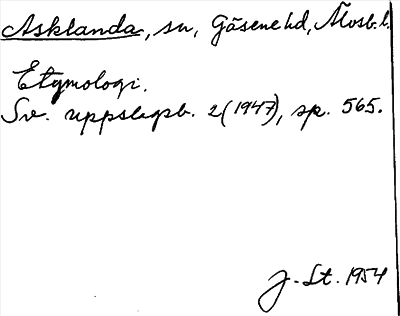 Asklanda, sn, Gäsene hd, Älvsb. l.
Etymologi.
Sv. uppslagsb. 2 (1947), sp. 565.
J. St. 1954